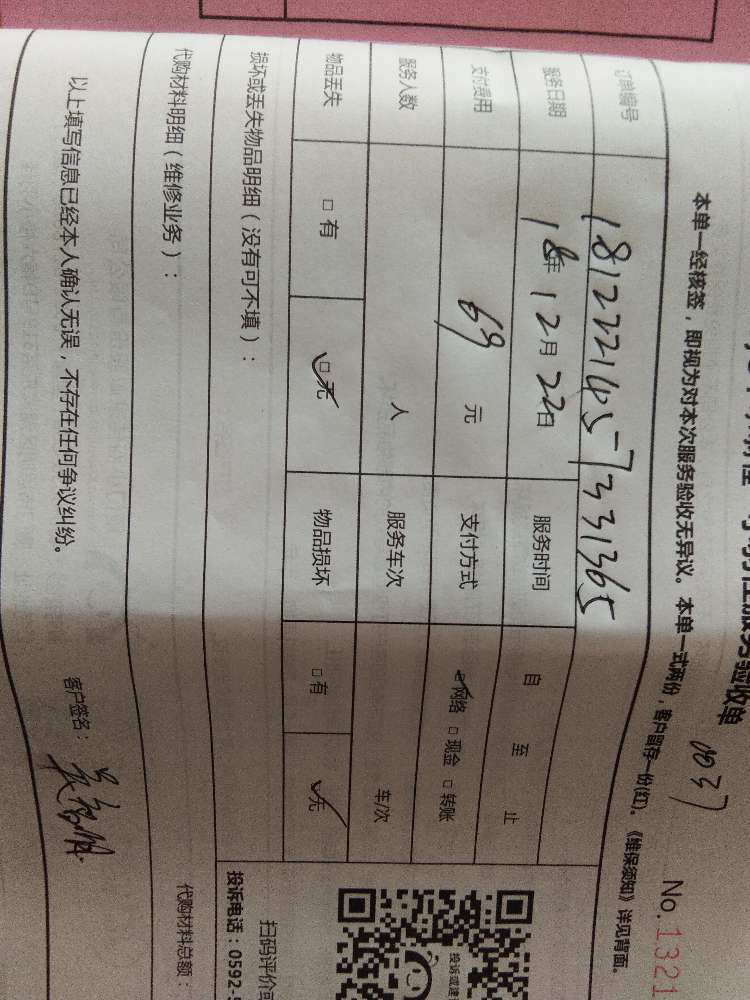 服务验收单
0037
No.1321
本单一经核签，即视为对本次服务验收无异议。本单一式两份，客户留存一份(红)。《维保须知》详见背面。
订单编号 18122214057331365
服务日期 18年12月22日 服务时间 自 至 止
支付费用 69 元 支付方式 ☑网络 □现金 □转账
服务人数 人 服务车次 车/次
物品丢失 □有 ☑无 物品损坏 □有 ☑无
损坏或丢失物品明细（没有可不填）：
代购材料明细（维修业务）： 代购材料总额：
以上填写信息已经本人确认无误，不存在任何争议纠纷。
客户签名：
扫码评价或
投诉电话：0592-5
投诉或建